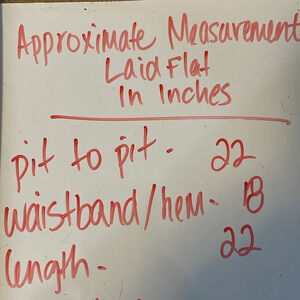 Approximate Measurement
Laid Flat
In Inches
pit to pit. 22
waistband/hem. 18
length. 22